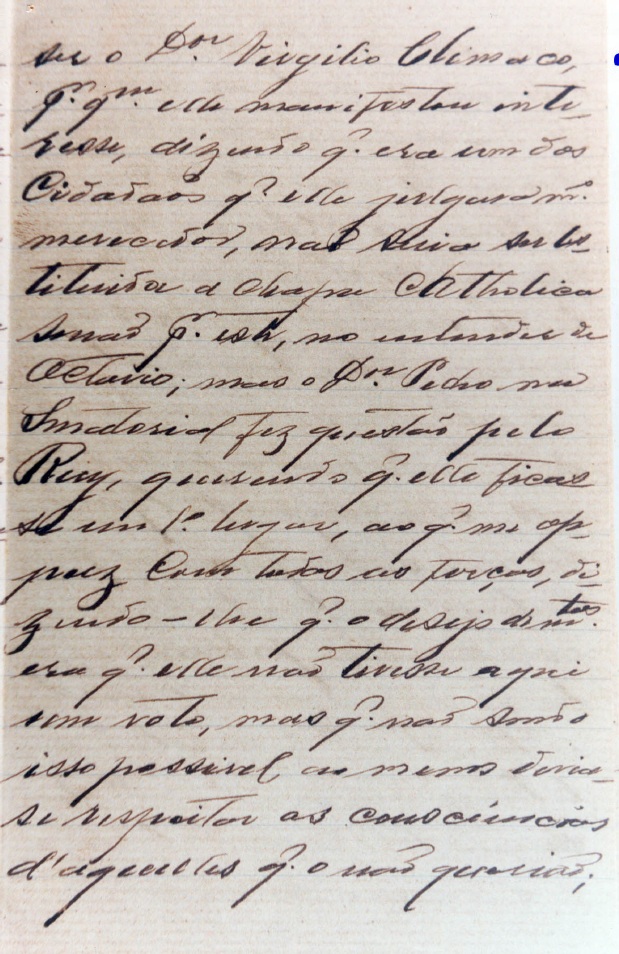 ser o Dor. Virgilio Climaco,
p.ª q.m elle manifestou inte-
resse, dizendo q. era um dos
Cidadaõs q.' elle julgava m.º
merecedor, naõ seria subs-
tituida a Chapa Catholica
senaõ p.ª este, no entender de
Octavio; mas o Dr. Pedro na
Senatorial fez questaõ pelo
Ruy, querendo q. elle ficas
se em 1.º lugar, ao q.' me op-
puz Com todas as forças, di-
zendo-lhe q. o desejo de m.tos
era q. elle naõ tivesse aqui
um voto, mas q. naõ sendo
isso possivel ao menos devia-
se respeitar as consciencias
d'aquelles q. o naõ queriaõ;